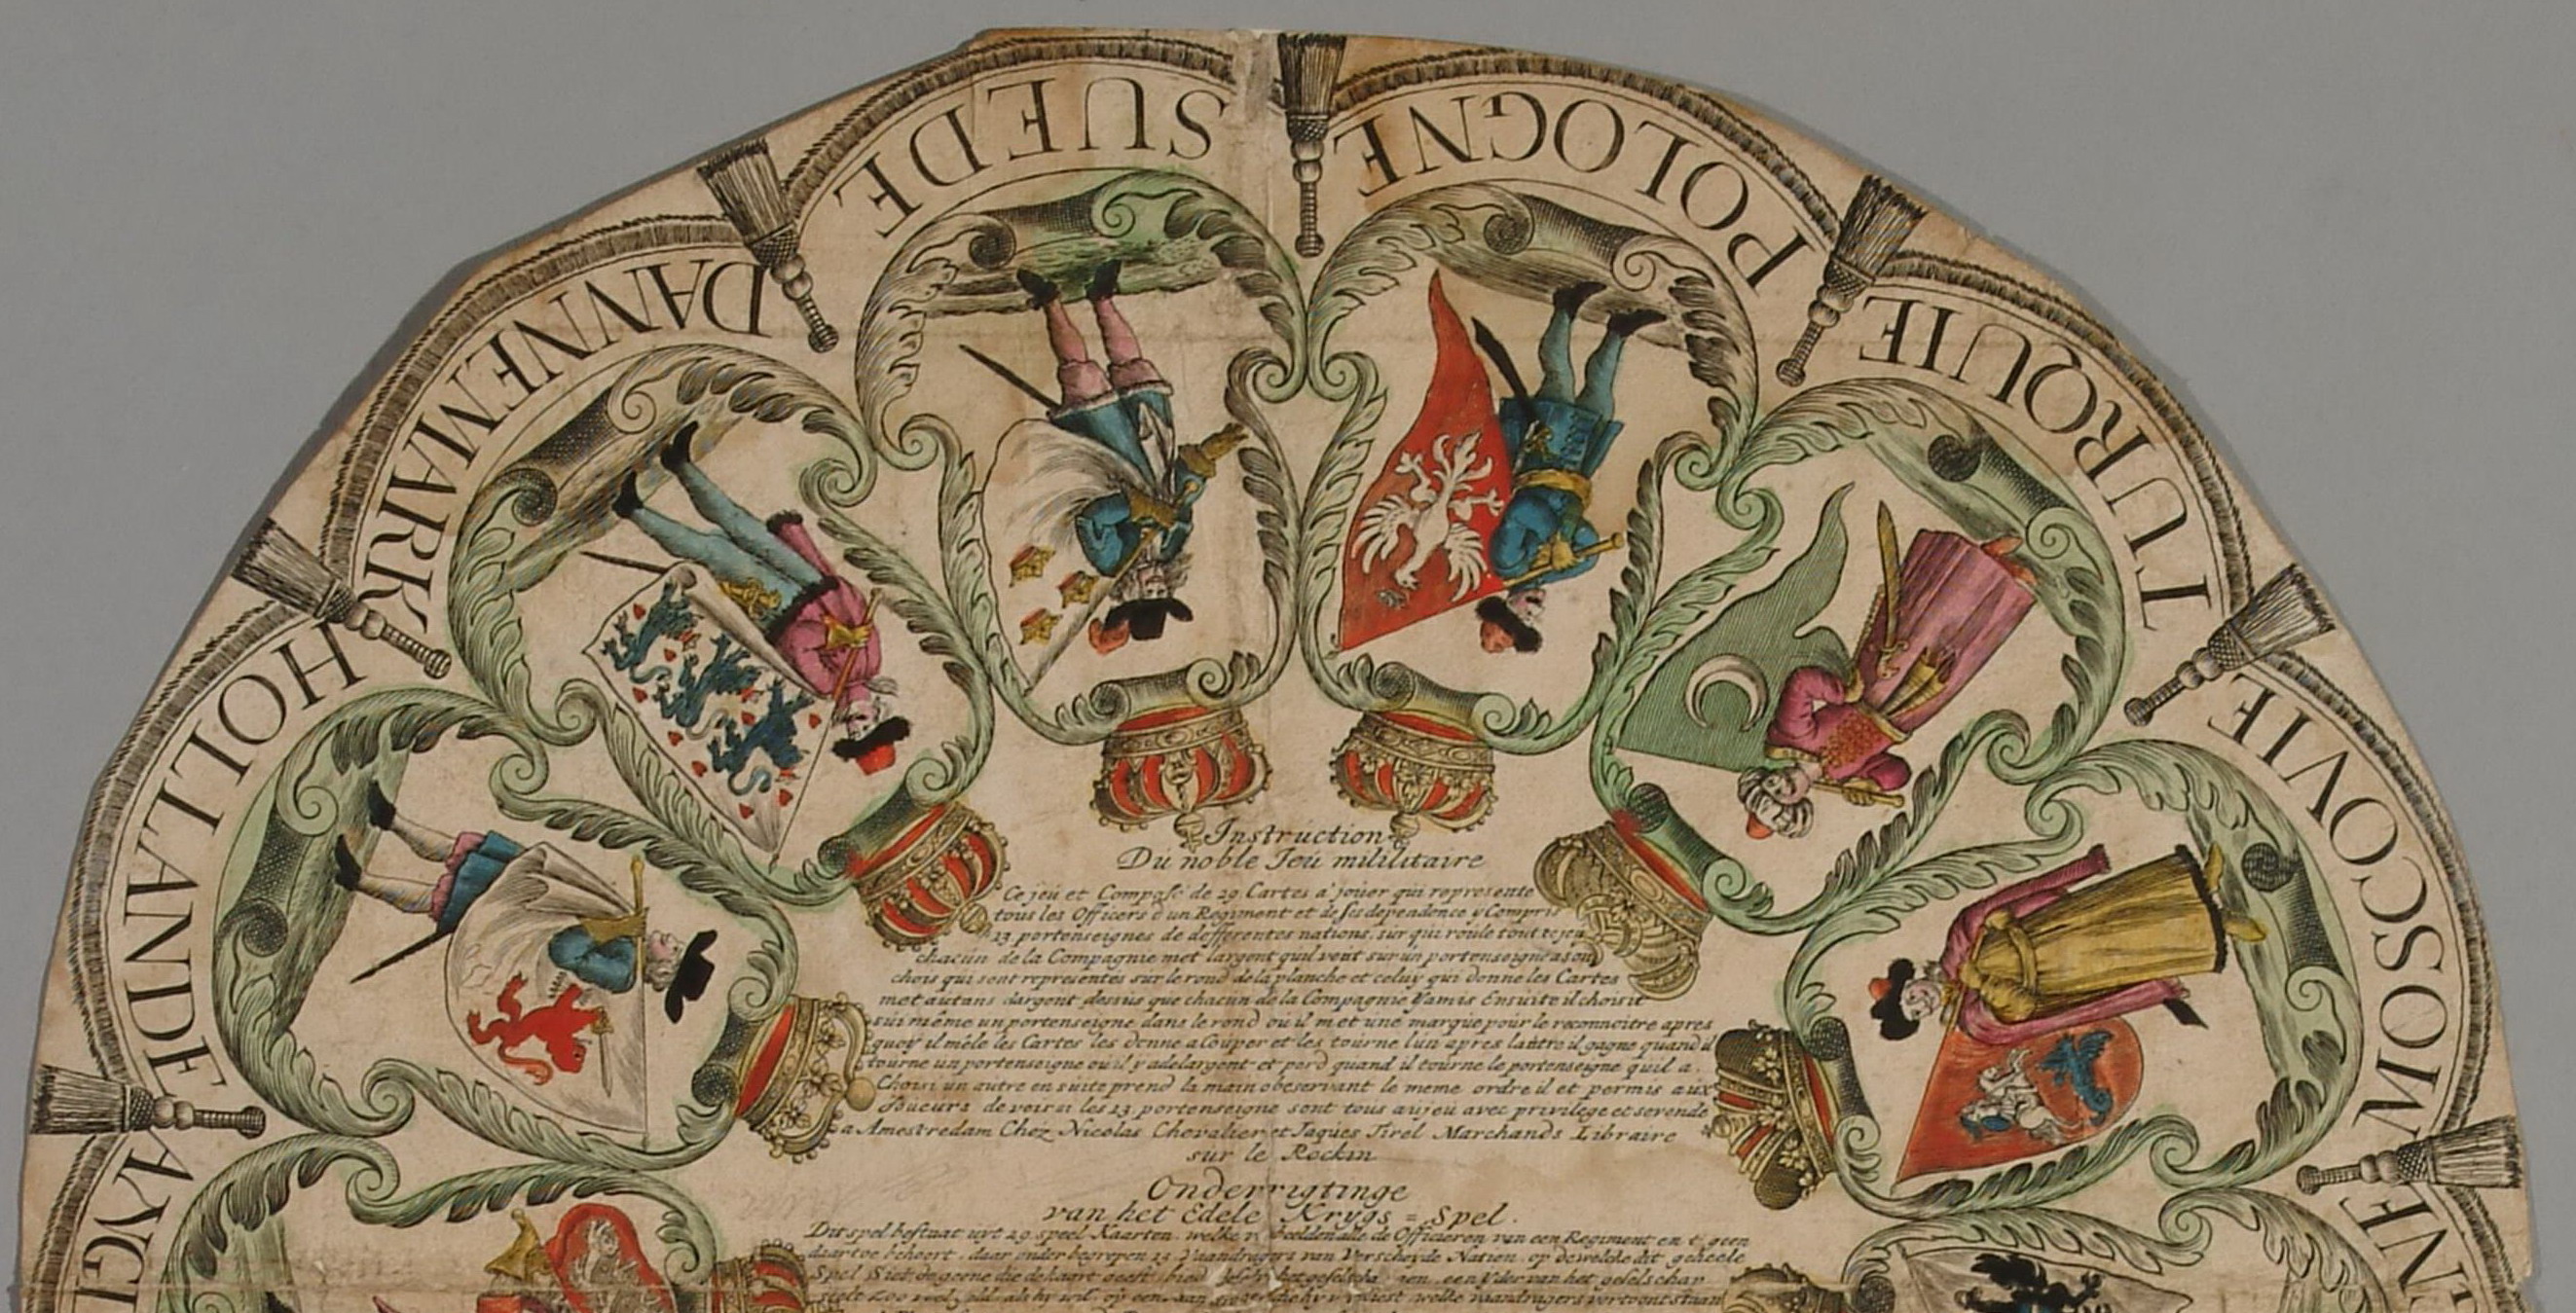 SUEDE
POLOGNE
DANNEMARK
TURQUIE
HOLLANDE
MOSCOVIE
Instruction
Du noble Jeu mililitaire
Ce jeu et Compose de 29 Cartes a jouer qui represente
tous les Officers d'un Regiment et de ses dependence y Compris
13 portenseignes de defferentes nations. sur qui roule tout te jeu
chacun de la Compagnie met largent quil veut sur un portenseigne a son
chois qui sont representes sur le rond de la planche et celuy qui donne les Cartes
met autans dargent dessus que chacun de la Compagnie Yamis Ensuite il choisit
lui même un portenseigne dans le rond ou il met une marque pour le reconnoitre apres
quoy il mêle les Cartes les donne a Couper et les tourne lun apres lautre il gagne quand il
tourne un portenseigne ou il y a de largent et perd quand il tourne le portenseigne quil a
Choisi un autre en suite prend la main observant le meme ordre il et permis aux
Joueurs de voir si les 13 portenseigne sont tous au jeu avec privilege et se vende
a Amestredam Chez Nicolas Chevalier et Jaques Tirel Marchands Libraire
sur le Rockin
Onderrigtinge
van het Edele Krygs = Spel.
Dit spel bestaat uyt 29 speel Kaarten, welke verbeelden alle de Officieren van een Regiment en t geen
daar toe behoort, daar onder begrepen 13 Vaandragers van Verscheyde Natien, op de welke dit geheele
Spel
een yder van het geselschap
welke vaandragers vertoont staan